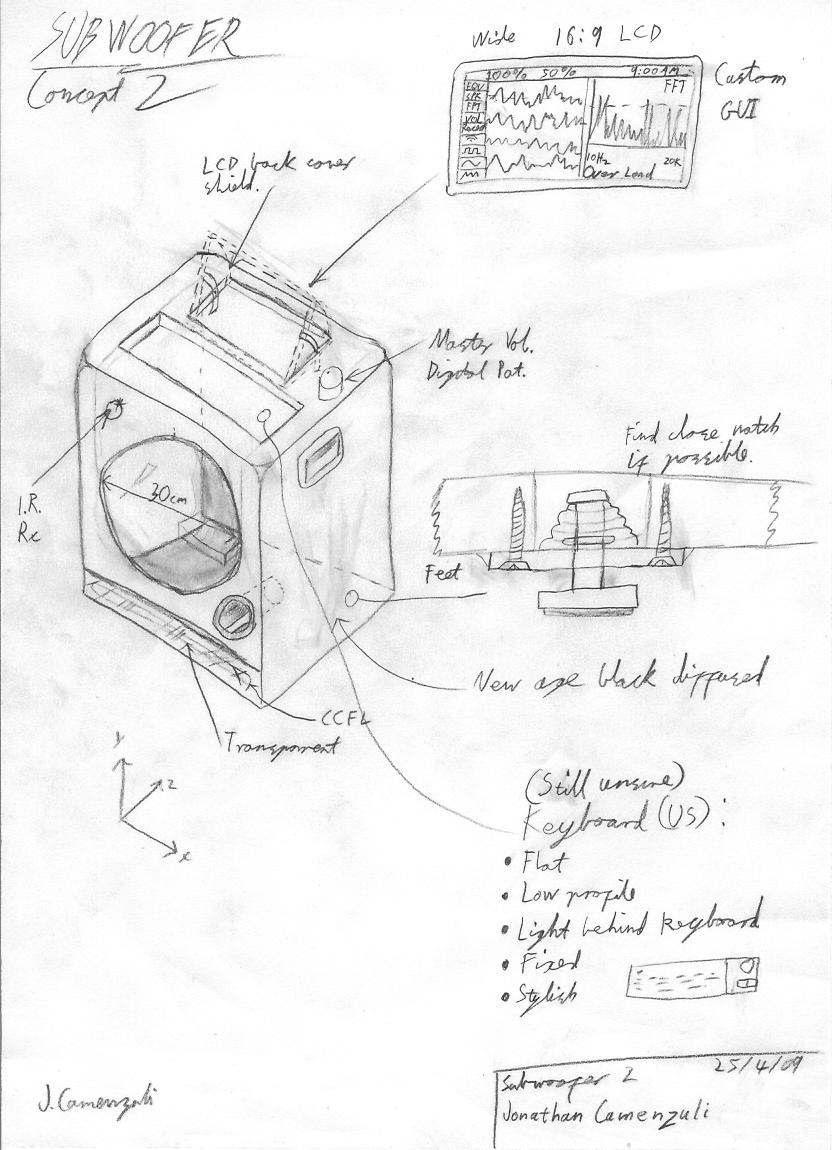 SUBWOOFER
Concept 2
Wide 16:9 LCD
Custom
GUI
100% 50% 9:00AM
EQU
SPK
FFT
VOL
FFT
10Hz 20K
Over Load
LCD back cover
shield.
Master Vol.
Digital Pot.
I.R.
Rx
30cm
Find close match
if possible.
Feet
New age black diffused
CCFL
Transparent
y
z
x
(Still unsure)
Keyboard (US):
• Flat
• Low profile
• Light behind keyboard
• Fixed
• Stylish
J.Camenzuli
25/4/09
Subwoofer 2
Jonathan Camenzuli